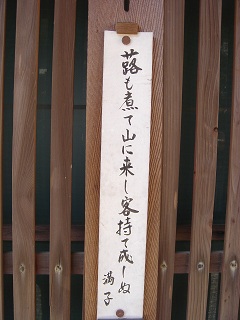 蕗も煮て山に来し客持て成しぬ
満子